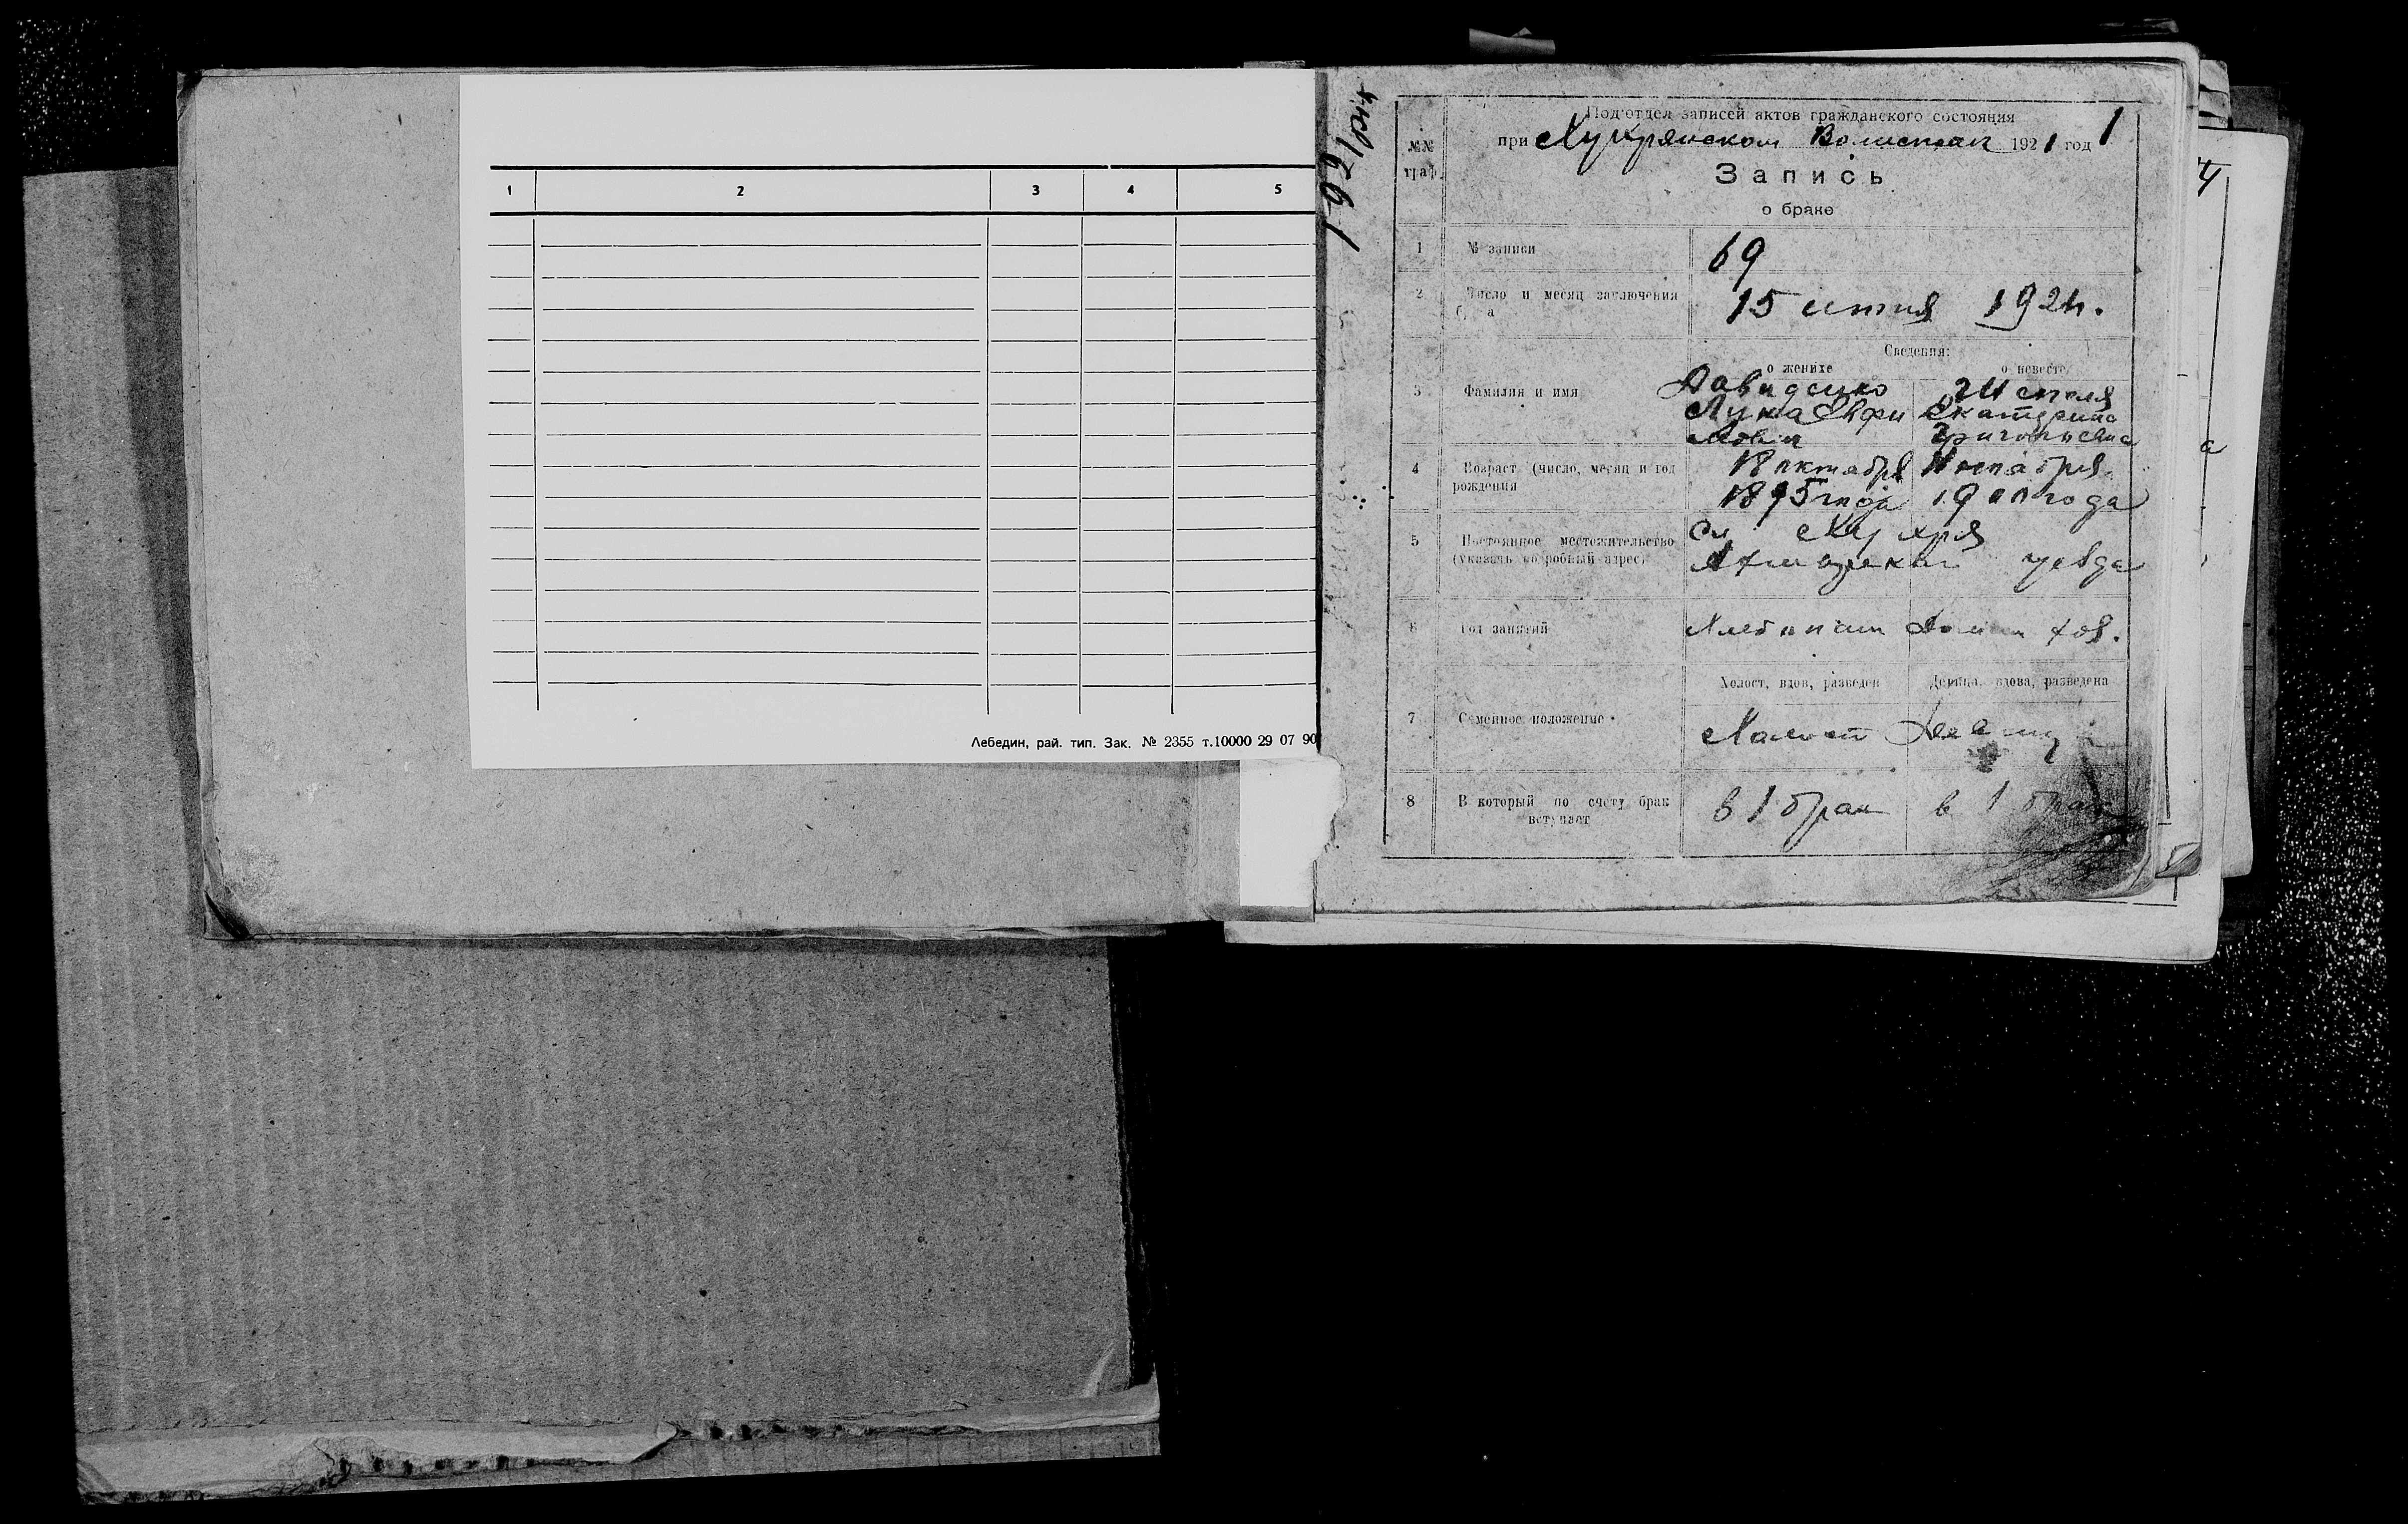 1 2 3 4 5
Лебедин, рай. тип. Зак. № 2355 т.10000 29 07 90
1921
1
Подотдел записей актов гражданского состояния
№№ граф.
при 1921 год
Запись
о браке
1 № записи 69
2 Число и месяц заключения 15 1921г.
Сведения:
о женихе о невесте
3 Фамилия и имя Давиденко
Лука Евфи Екатерина
мович Григорьевна
4 Возраст (число, месяц и год 18 октября ноября
рождения 1895 года года
5 Постоянное местожительство Сл.
(указать подробный адрес) уезда
6 Род занятий Хлебопаш Домаш хоз.
Холост, вдов, разведен Девица, вдова, разведена
7 Семейное положение Холост Девица
8 В который по счету брак в 1 брак в 1 брак
вступает